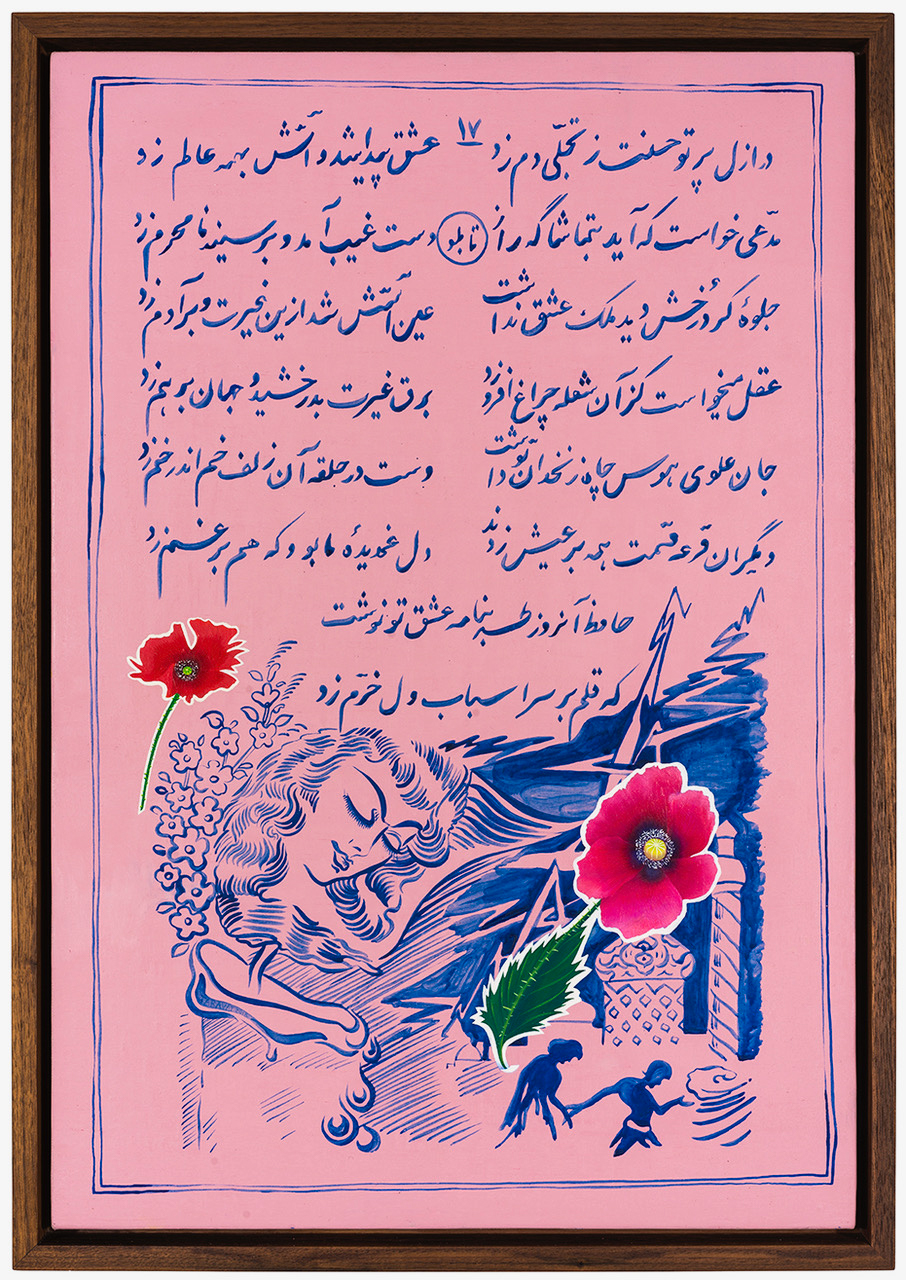 در ازل پرتو حسنت ز تجلّی دم زد ۱۷ عشق پیدا شد و آتش بهمه عالم زد
مدّعی خواست که آید بتماشاگه راز تابلو دست غیب آمد و بر سینه نامحرم زد
جلوهٔ کرد رخش دید ملک عشق نداشت عین آتش شد ازین غیرت و بر آدم زد
عقل میخواست کز آن شعله چراغ افروزد برق غیرت بدرخشید و جهان برهم زد
جان علوی هوس چاه زنخدان تو داشت دست در حلقه آن زلف خم اندر خم زد
دیگران قرعه قسمت همه بر عیش زدند دل غمدیده ما بود که هم بر غم زد
حافظ آنروز طربنامه عشق تو نوشت
که قلم بر سر اسباب دل خرّم زد